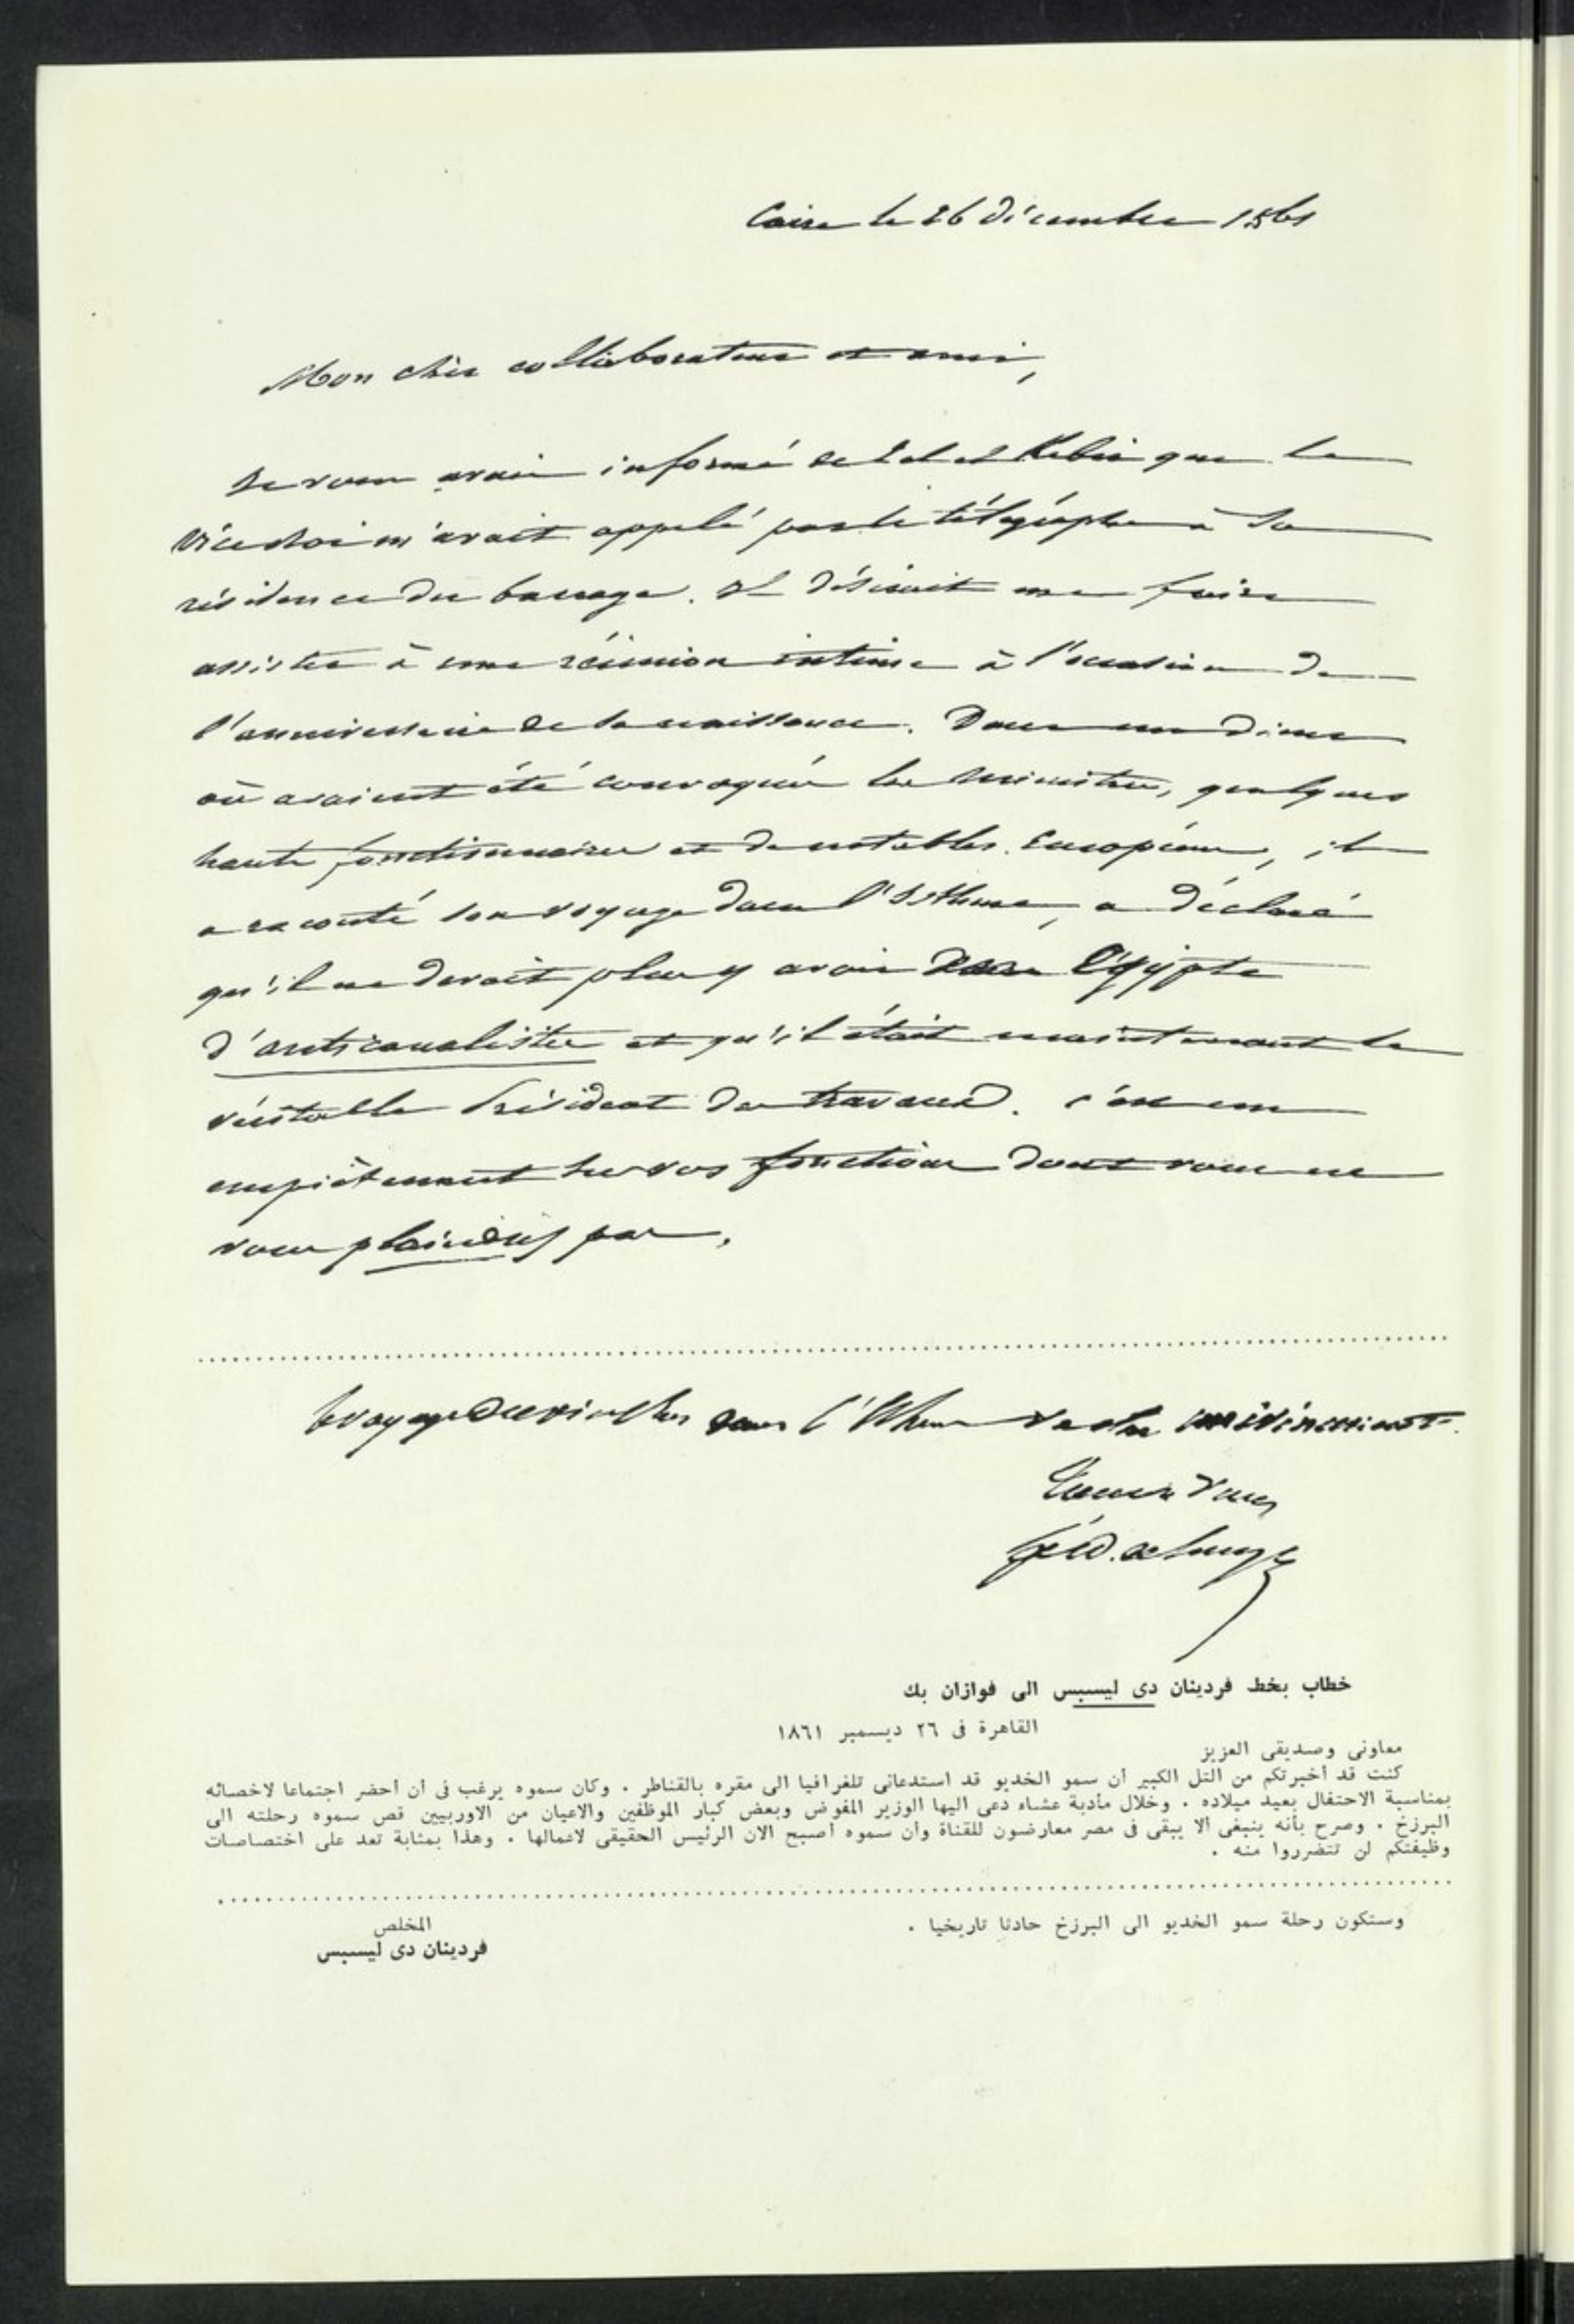 Caire le 26 décembre 1861
Mon cher collaborateur et ami,
Je vous avais informé de Tel el Kebir que le
Vice roi m'avait appelé par le télégraphe à sa
résidence du barrage. Il désirait me faire
assister à une réunion intime à l'occasion de
l'anniversaire de sa naissance. Dans un diner
où avaient été convoqués les ministres, quelques
hauts fonctionnaires et de notables Européens, il
a raconté son voyage dans l'Isthme, a déclaré
qu'il ne devait plus y avoir dans l'Egypte
d'anticanalistes et qu'il était maintenant le
véritable Président des travaux. C'est un
empiètement sur vos fonctions dont vous ne
vous plaindrez pas.
Le voyage du vice roi dans l'Isthme sera un événement.
Tout à vous
Ferd. de Lesseps
خطاب بخط فردينان دى ليسبس الى فوازان بك
القاهرة فى ٢٦ ديسمبر ١٨٦١
معاونى وصديقى العزيز
كنت قد أخبرتكم من التل الكبير أن سمو الخديو قد استدعانى تلغرافيا الى مقره بالقناطر . وكان سموه يرغب فى أن أحضر اجتماعا لاخصائه
بمناسبة الاحتفال بعيد ميلاده . وخلال مأدبة عشاء دعى اليها الوزير المفوض وبعض كبار الموظفين والاعيان من الاوربيين قص سموه رحلته الى
البرزخ . وصرح بأنه ينبغى ألا يبقى فى مصر معارضون للقناة وأن سموه أصبح الآن الرئيس الحقيقى لاعمالها . وهذا بمثابة تعد على اختصاصات
وظيفتكم لن تتضرروا منه .
وستكون رحلة سمو الخديو الى البرزخ حادثا تاريخيا .
المخلص
فردينان دى ليسبس